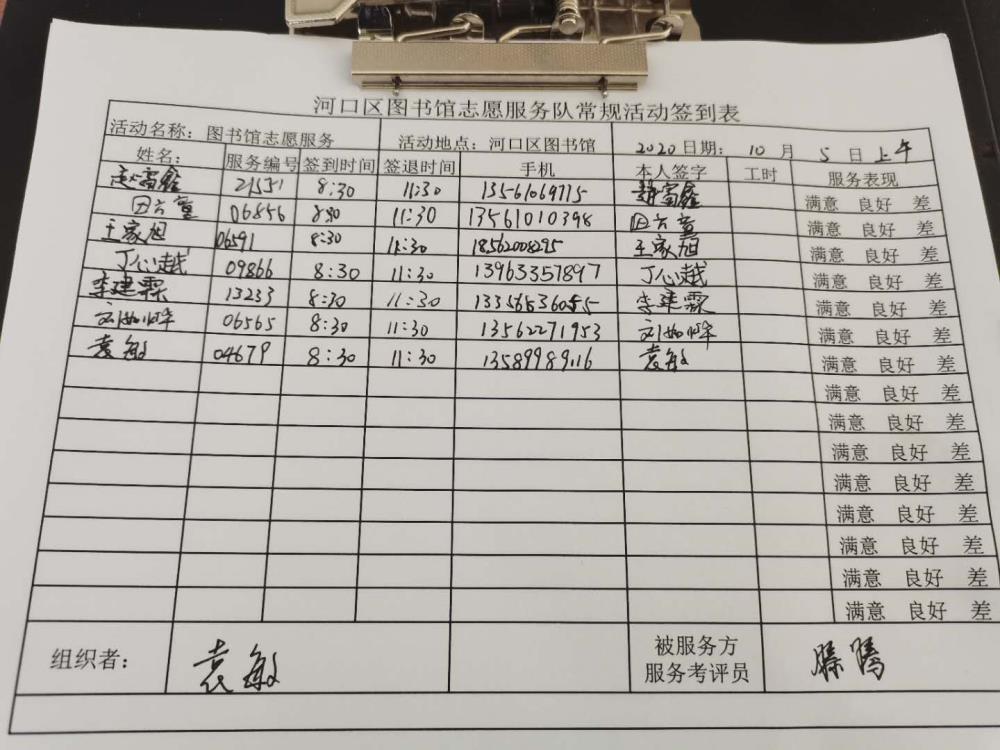 河口区图书馆志愿服务队常规活动签到表
活动名称：图书馆志愿服务 活动地点：河口区图书馆 2020日期：10月5日上午
姓名： 服务编号 签到时间 签退时间 手机 本人签字 工时 服务表现
赵富鑫 21551 8:30 11:30 13561069715 赵富鑫 满意 良好 差
田方童 06856 8:30 11:30 13561010398 田方童 满意 良好 差
王家旭 06591 8:30 11:30 18562008295 王家旭 满意 良好 差
丁心越 09866 8:30 11:30 13963357897 丁心越 满意 良好 差
李建霖 13233 8:30 11:30 李建霖 满意 良好 差
06565 8:30 11:30 13562271953 满意 良好 差
袁敏 04679 8:30 11:30 13589989116 袁敏 满意 良好 差
满意 良好 差
满意 良好 差
满意 良好 差
满意 良好 差
满意 良好 差
满意 良好 差
满意 良好 差
满意 良好 差
组织者： 袁敏 被服务方
服务考评员 滕腾